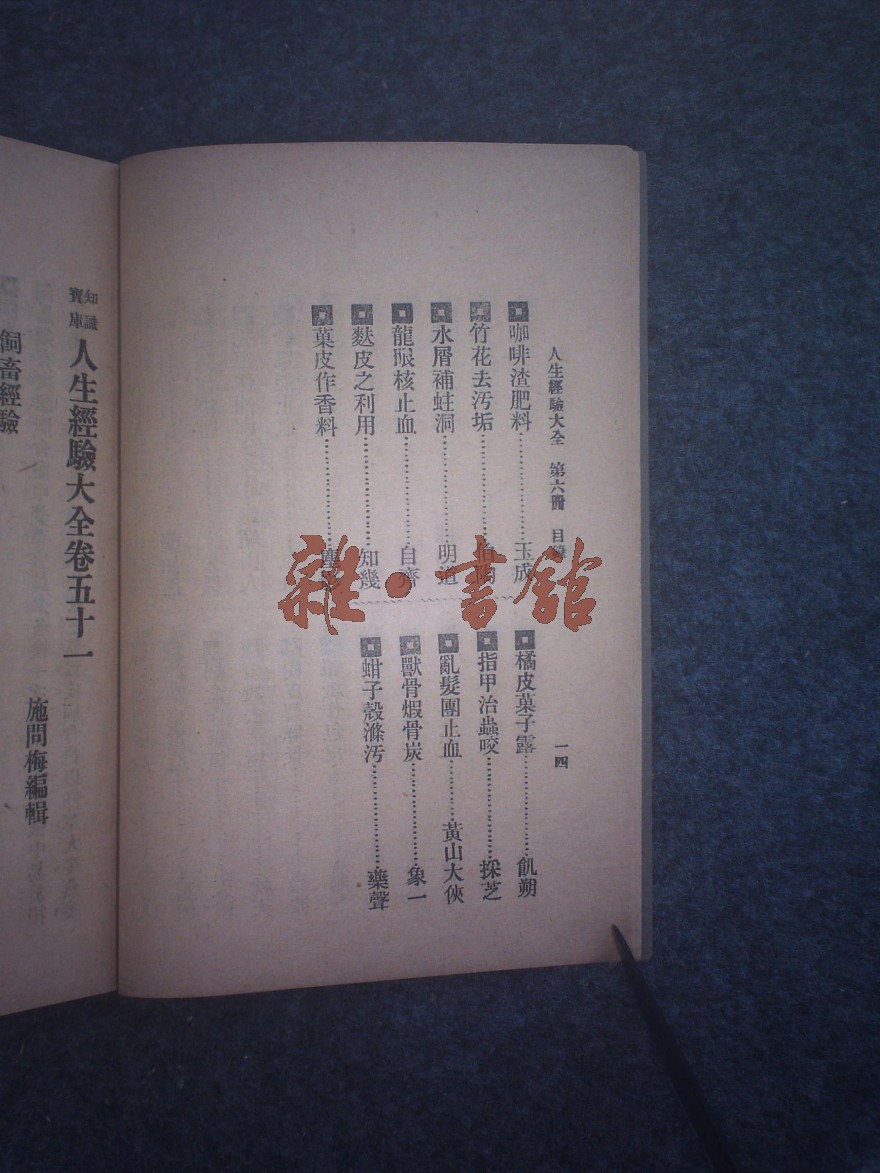 人生經驗大全　第六冊　目錄
一四
咖啡渣肥料…………玉成
竹花去污垢…………伯陶
水屑補蛀洞…………明道
龍眼核止血…………自齋
麩皮之利用…………知幾
菓皮作香料…………
橘皮菓子露…………飢朔
指甲治蟲咬…………採芝
亂髮團止血…………黃山大俠
獸骨煆骨炭…………象一
蚶子殼滌汚…………樂聲
知識寶庫 人生經驗大全卷五十一
施問梅編輯
飼畜經驗
雜·書館